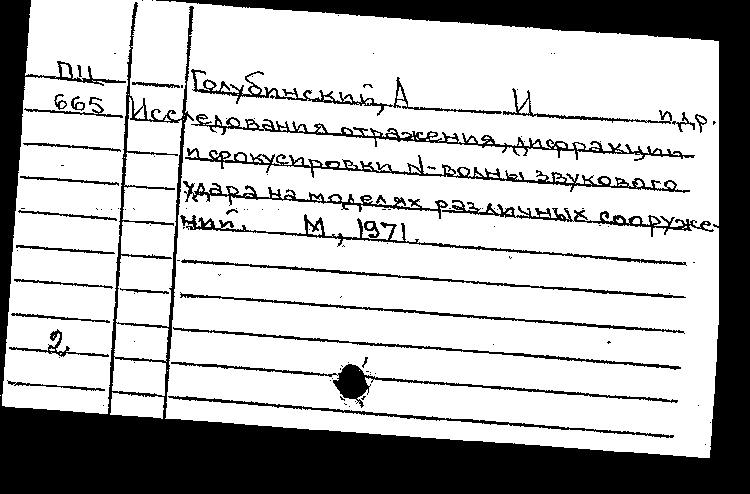 ПЦ
665
Голубинский, А И и др.
Исследования отражения, дифракции
и фокусировки N-волны звукового
удара на моделях различных сооруже-
ний. М., 1971.
2